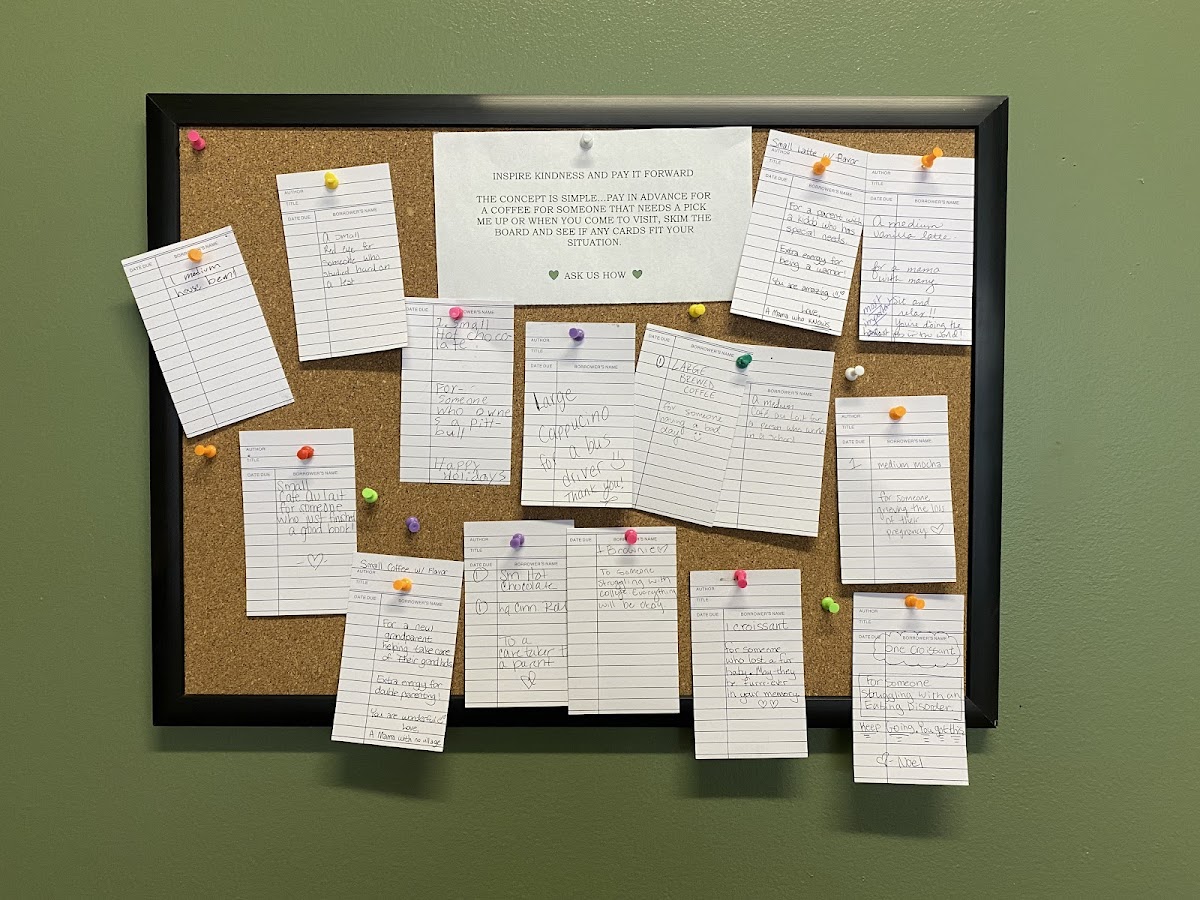 INSPIRE KINDNESS AND PAY IT FORWARD
THE CONCEPT IS SIMPLE...PAY IN ADVANCE FOR
A COFFEE FOR SOMEONE THAT NEEDS A PICK
ME UP OR WHEN YOU COME TO VISIT, SKIM THE
BOARD AND SEE IF ANY CARDS FIT YOUR
SITUATION.
ASK US HOW
DATE DUE BORROWER'S NAME
medium
house bean!
AUTHOR
TITLE
DATE DUE BORROWER'S NAME
A small
Red eye for
someone who
studied hard on
a test
BORROWER'S NAME
1 small
Hot choco
late!
For-
Someone
who owne
s a pit-
bull
Happy
Holidays
AUTHOR
TITLE
DATE DUE BORROWER'S NAME
Large
Cappucino
for a bus
driver
Thank you!
DATE DUE
1 LARGE
BREWED
COFFEE
for someone
having a bad
day
BORROWER'S NAME
A medium
Cafe au lait for
a person who works
in a school
Small Latte w/ Flavor
AUTHOR
TITLE
DATE DUE BORROWER'S NAME
For a parent with
a kiddo who has
special needs
Extra energy for
being a warrior!
You are amazing!!!
Love,
A Mama who knows
AUTHOR
TITLE
DATE DUE BORROWER'S NAME
A medium
vanilla latte.
for a mama
with many
and
relax!!
You're doing the
AUTHOR
TITLE
DATE DUE BORROWER'S NAME
1 medium mocha
for someone
grieving the loss
of their
pregnancy
AUTHOR
TITLE
DATE DUE BORROWER'S NAME
Small
Cafe Au Lait
for someone
who just finished
a good book!
Small Coffee w/ Flavor
AUTHOR
TITLE
DATE DUE BORROWER'S NAME
For a new
grandparent
helping take care
of their grandkids
Extra energy for
double parenting!
You are wonderful
Love,
A Mama with no village
AUTHOR
TITLE
DATE DUE BORROWER'S NAME
1 Sm Hot
Chocolate
1 Cinn Roll
To a
caretaker to
a parent
DATE DUE BORROWER'S NAME
1 Brownie
To someone
struggling with
college. Everything
will be okay.
AUTHOR
TITLE
DATE DUE BORROWER'S NAME
1 croissant
for someone
who lost a fur
baby. May they
be furr-ever
in your memory
AUTHOR
TITLE
DATE DUE BORROWER'S NAME
One Croissant
For Someone
Struggling with an
Eating Disorder.
Keep Going. You got this
- Noel